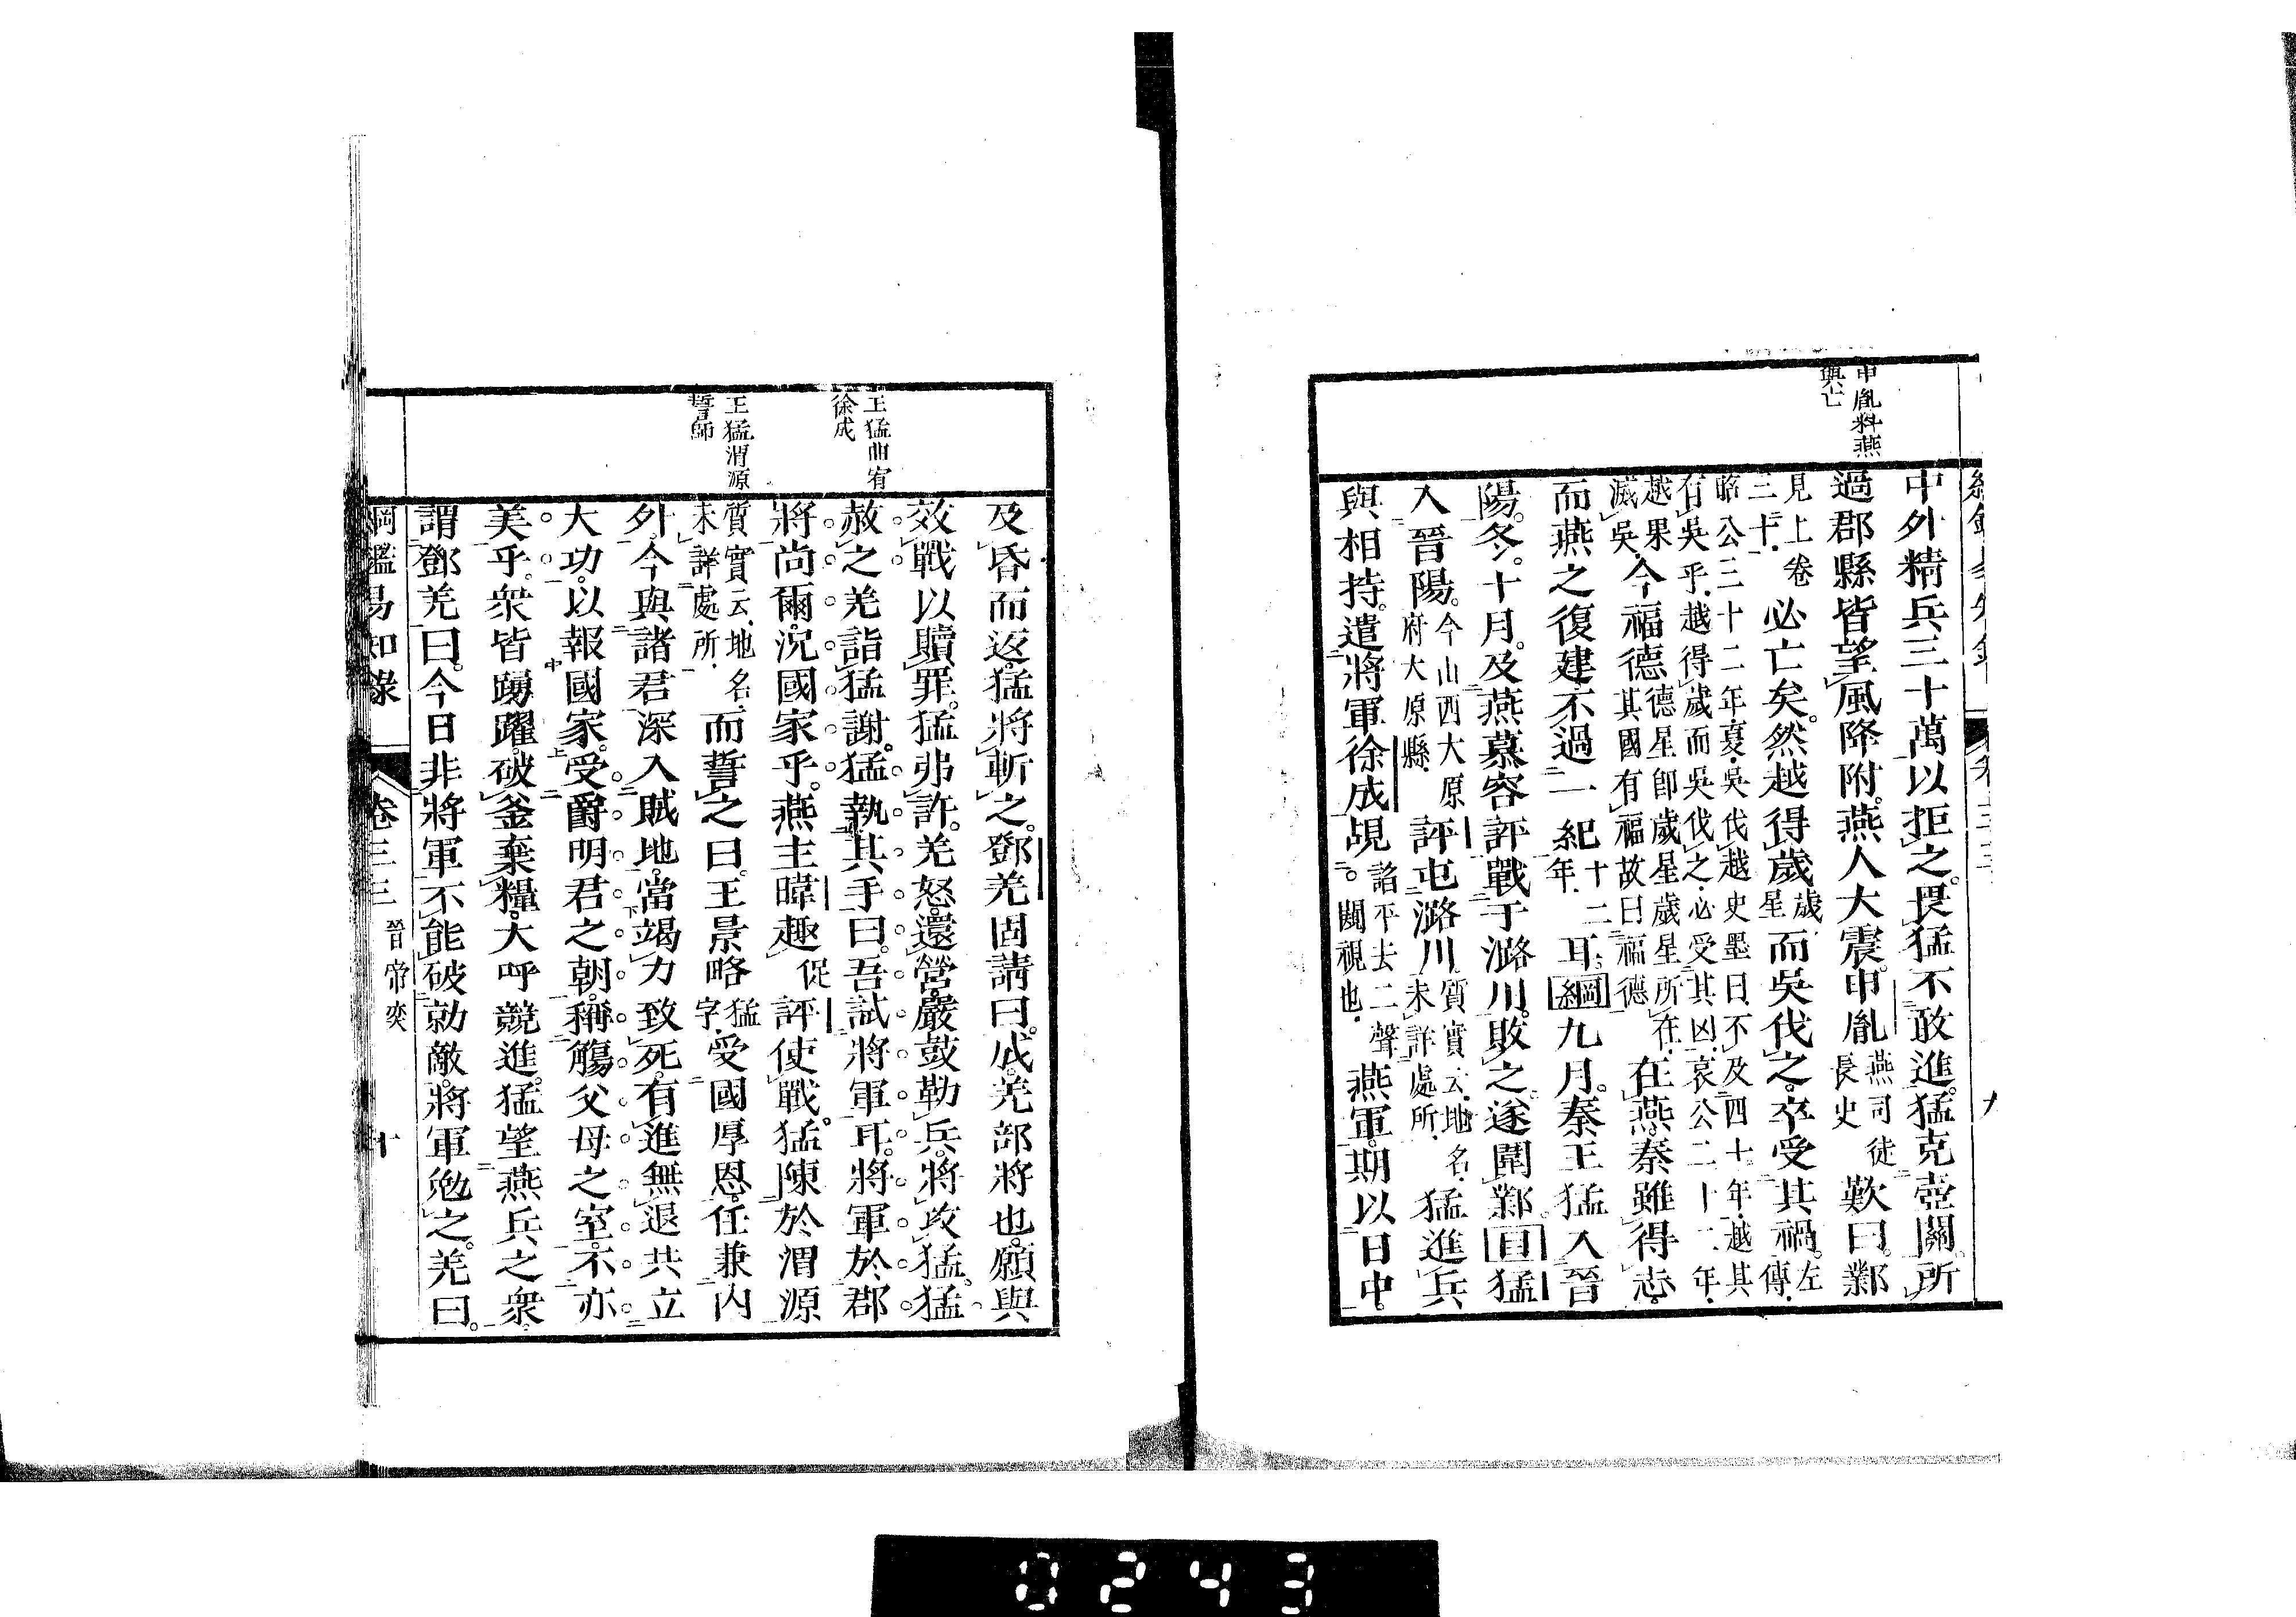 綱鑑易知錄
卷三三
九
申胤料燕
興亡
中外精兵三十萬以拒之。畏猛不敢進。猛克壺關。所
過郡縣皆望風降附。燕人大震。申胤燕司徒長史歎曰。鄴
見上卷二十。必亡矣。然越得歲歲星而吳伐之。卒受其禍。左傳。
昭公三十二年夏。吳伐越史墨曰不及四十年。越其
有吳乎。越得歲而吳伐之。必受其凶。哀公二十二年。
越果滅吳。今福德德星卽歲星歲星所在。其國有福故曰福德在燕。秦雖得志。
而燕之復建不過一紀十二年。耳。綱九月。秦王猛入晉
陽。冬。十月。及燕慕容評戰于潞川。敗之。遂圍鄴。目猛
入晉陽。今山西大原府大原縣。評屯潞川。質實云。地名。未詳處所。猛進兵
與相持。遣將軍徐成覘諂平去二聲。闚視也。燕軍。期以日中。
王猛曲宥
徐成
王猛渭源
誓師
及昏而返。猛將斬之。鄧羌固請曰。成。羌部將也。願與
效戰以贖罪。猛弗許。羌怒。還營。嚴鼓勒兵。將攻猛。猛
赦之羌詣猛謝。猛執其手曰。吾試將軍耳。將軍於郡
將尚爾。況國家乎。燕主暐趣促評使戰。猛陳於渭源
質實云。地名。未詳處所。而誓之曰。王景略猛字。受國厚恩。任兼內
外。今與諸君深入賊地。當竭力致死。有進無退共立
大功。以報國家。受爵明君之朝。稱觴父母之室。不亦
美乎。衆皆踴躍。破釜棄糧。大呼競進。猛望燕兵之衆。
謂鄧羌曰。今日非將軍不能破勍敵。將軍勉之。羌曰。
綱鑑易知錄
卷三三
晉帝奕
十
0243